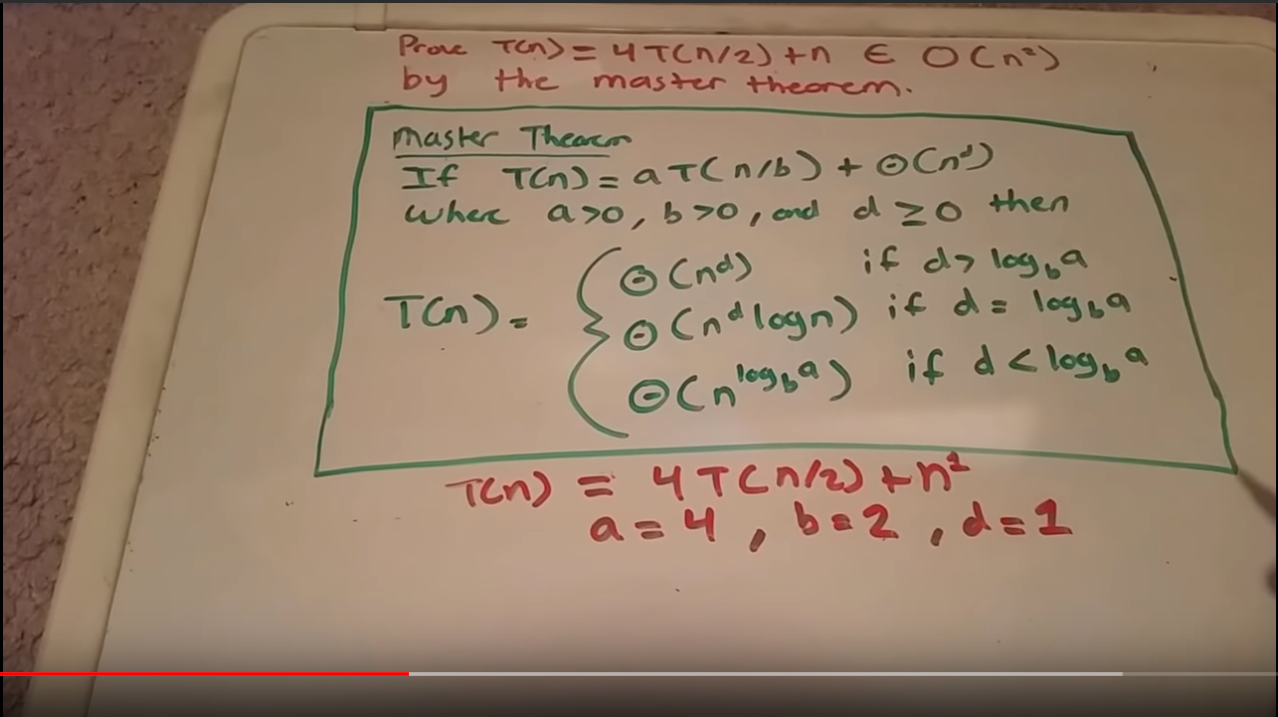 Prove T(n) = 4T(n/2) + n ∈ O(n²)
by the master theorem.
Master Theorem
If T(n) = aT(n/b) + Θ(n^d)
where a>0, b>0, and d ≥ 0 then
T(n) = { Θ(n^d) if d > log_b a
Θ(n^d log n) if d = log_b a
Θ(n^(log_b a)) if d < log_b a
T(n) = 4T(n/2) + n¹
a = 4, b = 2, d = 1